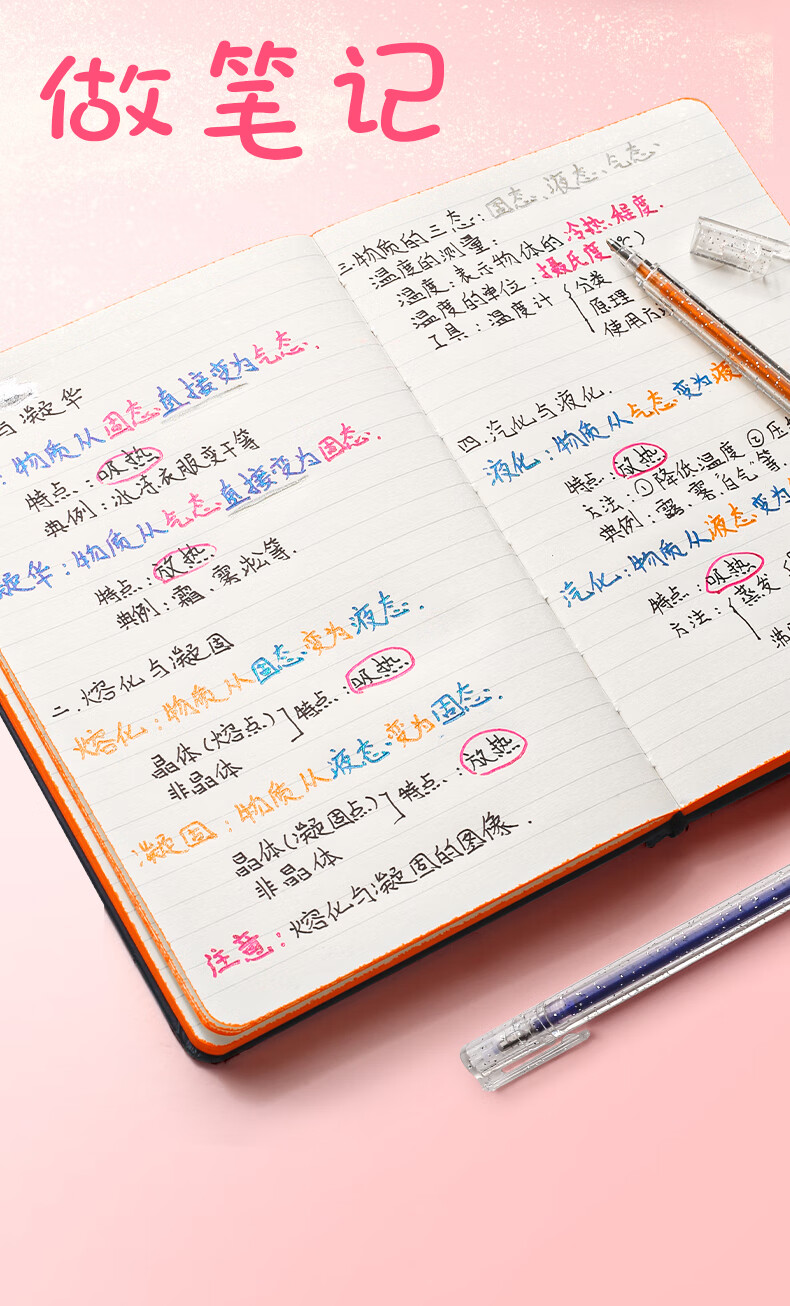 做笔记
与凝华
：物质从固态直接变为气态．
特点：吸热
典例：冰冻衣服变干等
凝华：物质从气态直接变为固态．
特点：放热
典例：霜、雾凇等．
二．熔化与凝固
熔化：物质从固态变为液态．
晶体（熔点）］特点：吸热
非晶体
凝固：物质从液态变为固态．
晶体（凝固点）］特点：放热
非晶体
注意：熔化与凝固的图像．
三物质的三态：固态、液态、气态
温度的测量：
温度：表示物体的冷热程度．
温度的单位：摄氏度 ℃）
工具：温度计｛分类
原理
使用方
四．汽化与液化．
液化：物质从气态变为液
特点：放热
方法：①降低温度②压
典例：露、雾"白气"等．
汽化：物质从液态变为
特点：吸热
方法：｛蒸发
沸